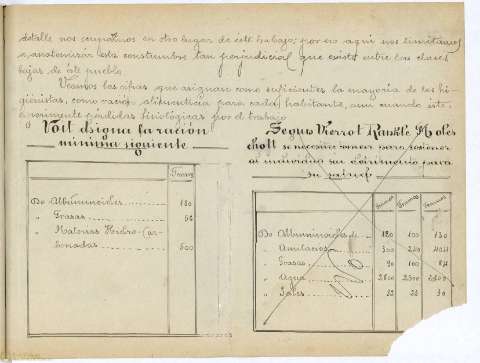 detalle nos ocupamos en otro lugar de este trabajo; por eso aqui nos limitamos
a anatomizar esta costumbre tan perjudicial que existe entre las clases
bajas de este pueblo.
Veamos las cifras que asignan como suficientes la mayoria de los hi-
gienistas, como racion alimenticia para cada habitante, aun cuando éste
experimente pérdidas fisiológicas por el trabajo
Voit dsigna la ración
minima siguiente
Gramos
De Albuminoides 110
" Grasas 56
" Materias Hidro-Car-
bonadas 500
Segun Vierrot Ranke Moles
chott se necesita para
al individuo sin detrimento para
su salud
Gramos Gramos Gramos
De Albuminoides 120 100 130
" Amilacios 300 240 404
" Grasas 90 100 84
" Agua 2800 2500 2800
" Sales 32 25 30